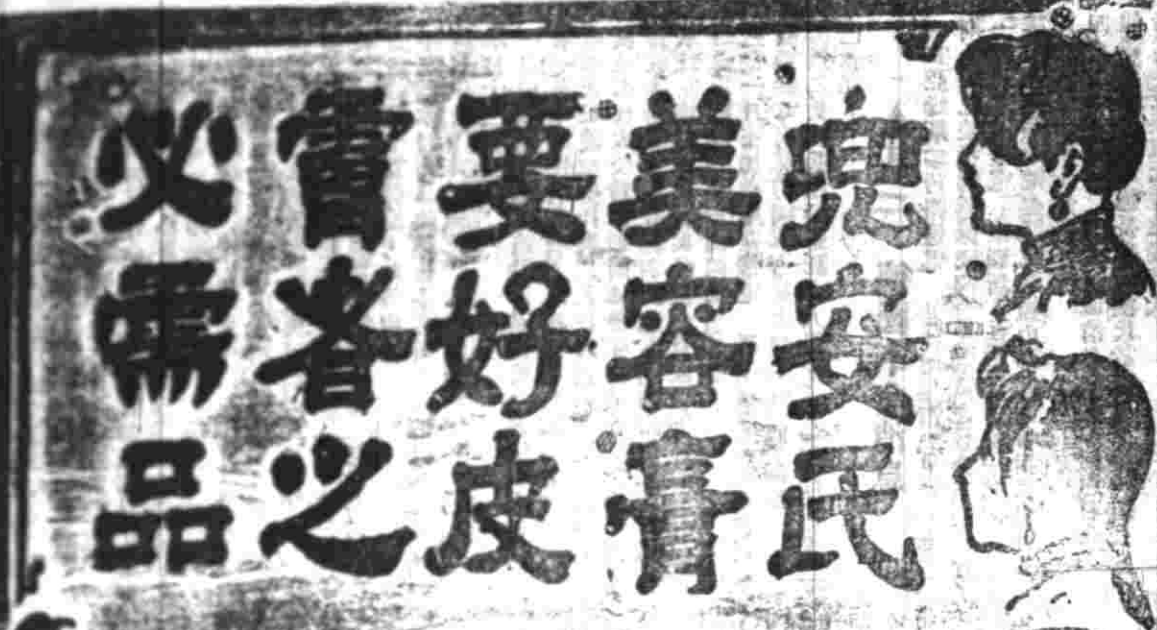 兜安氏
美容膏
要好皮
膚者之
必需品